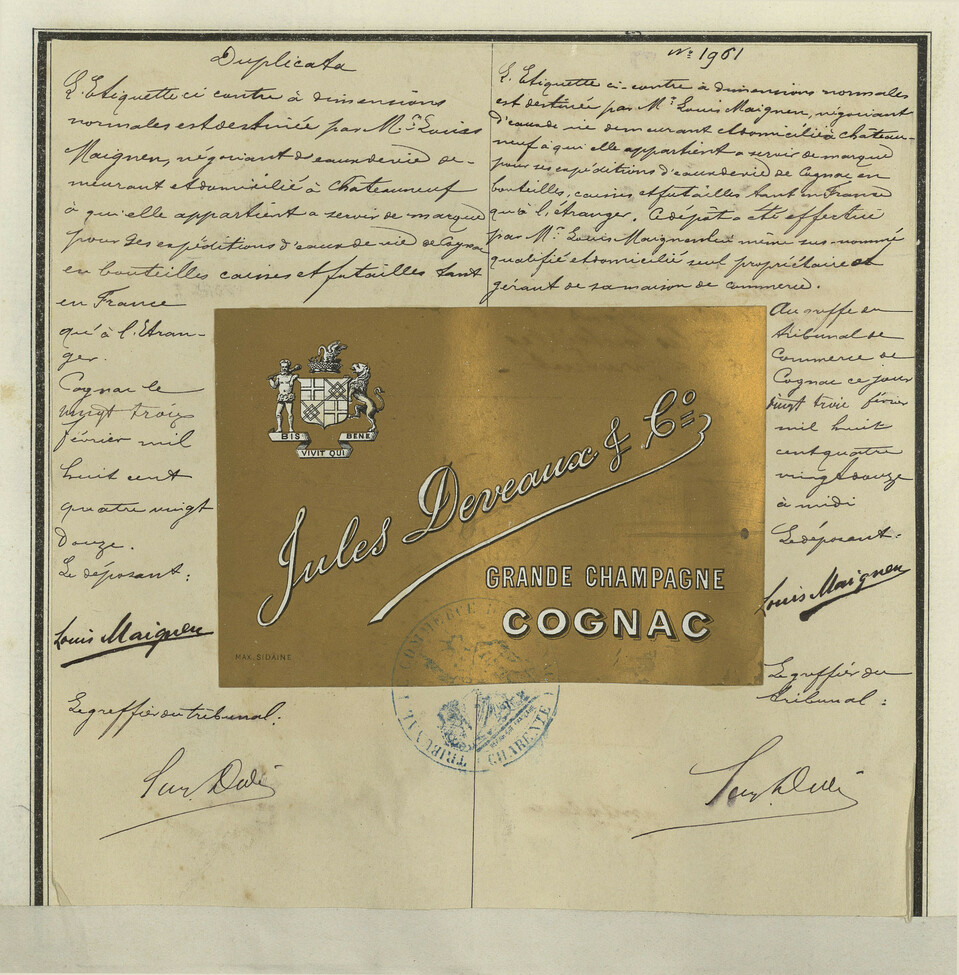 Duplicata
L'Etiquette ci contre à dimensions
normales est destinée par Mr Louis
Maignen, négociant d'eaux de vie de-
meurant et domicilié à Chateauneuf
à qui elle appartient a servir de marque
pour ses expéditions d'eaux de vie de Cognac
en bouteilles caisses et futailles tant
en France
qu'à l'Etran-
ger.
Cognac le
vingt trois
février mil
huit cent
quatre vingt
douze.
Le déposant:
Louis Maignen
Le greffier du tribunal.
No 1961
L'Etiquette ci-contre à dimensions normales
est destinée par Mr Louis Maignen, négociant
d'eaux de vie demeurant et domicilié à Château-
neuf à qui elle appartient a servir de marque
pour ses expéditions d'eaux de vie de Cognac en
bouteilles, caisses et futailles tant en France
qu'à l'étranger. Ce dépôt a été effectué
par Mr Louis Maignen lui même sus-nommé
qualifié et domicilié seul propriétaire et
gérant de sa maison de commerce.
Au greffe du
tribunal de
Commerce de
Cognac ce jour
vingt trois février
mil huit
cent quatre
vingt douze
à midi
Le déposant:
Louis Maignen
Le greffier du
tribunal:
BIS BENE
VIVIT QUI
Jules Deveaux & Co
GRANDE CHAMPAGNE
COGNAC
MAX. SIDAINE
TRIBUNAL COMMERCE
CHARENTE